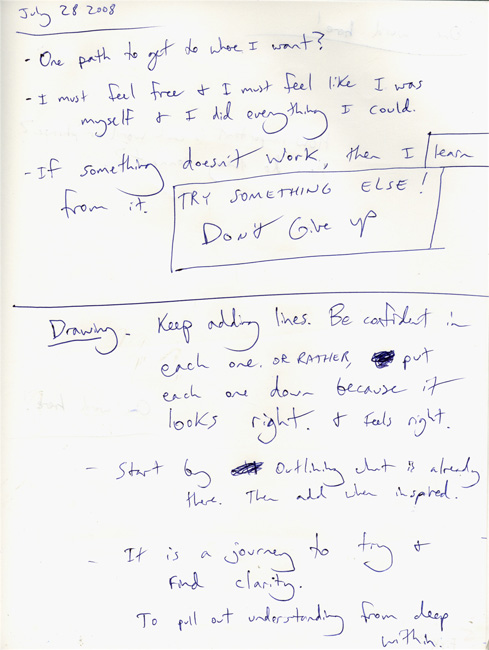 July 28 2008
- One path to get do where I want?
- I must feel free & I must feel like I was
myself & I did everything I could.
- If something doesn't work, then I learn
from it.
TRY SOMETHING ELSE!
Don't Give up
Drawing - Keep adding lines. Be confident in
each one. OR RATHER, put
each one down because it
looks right. & feels right.
- Start by outlining what is already
there. Then add when inspired.
- It is a journey to try &
find clarity.
To pull out understanding from deep
within.